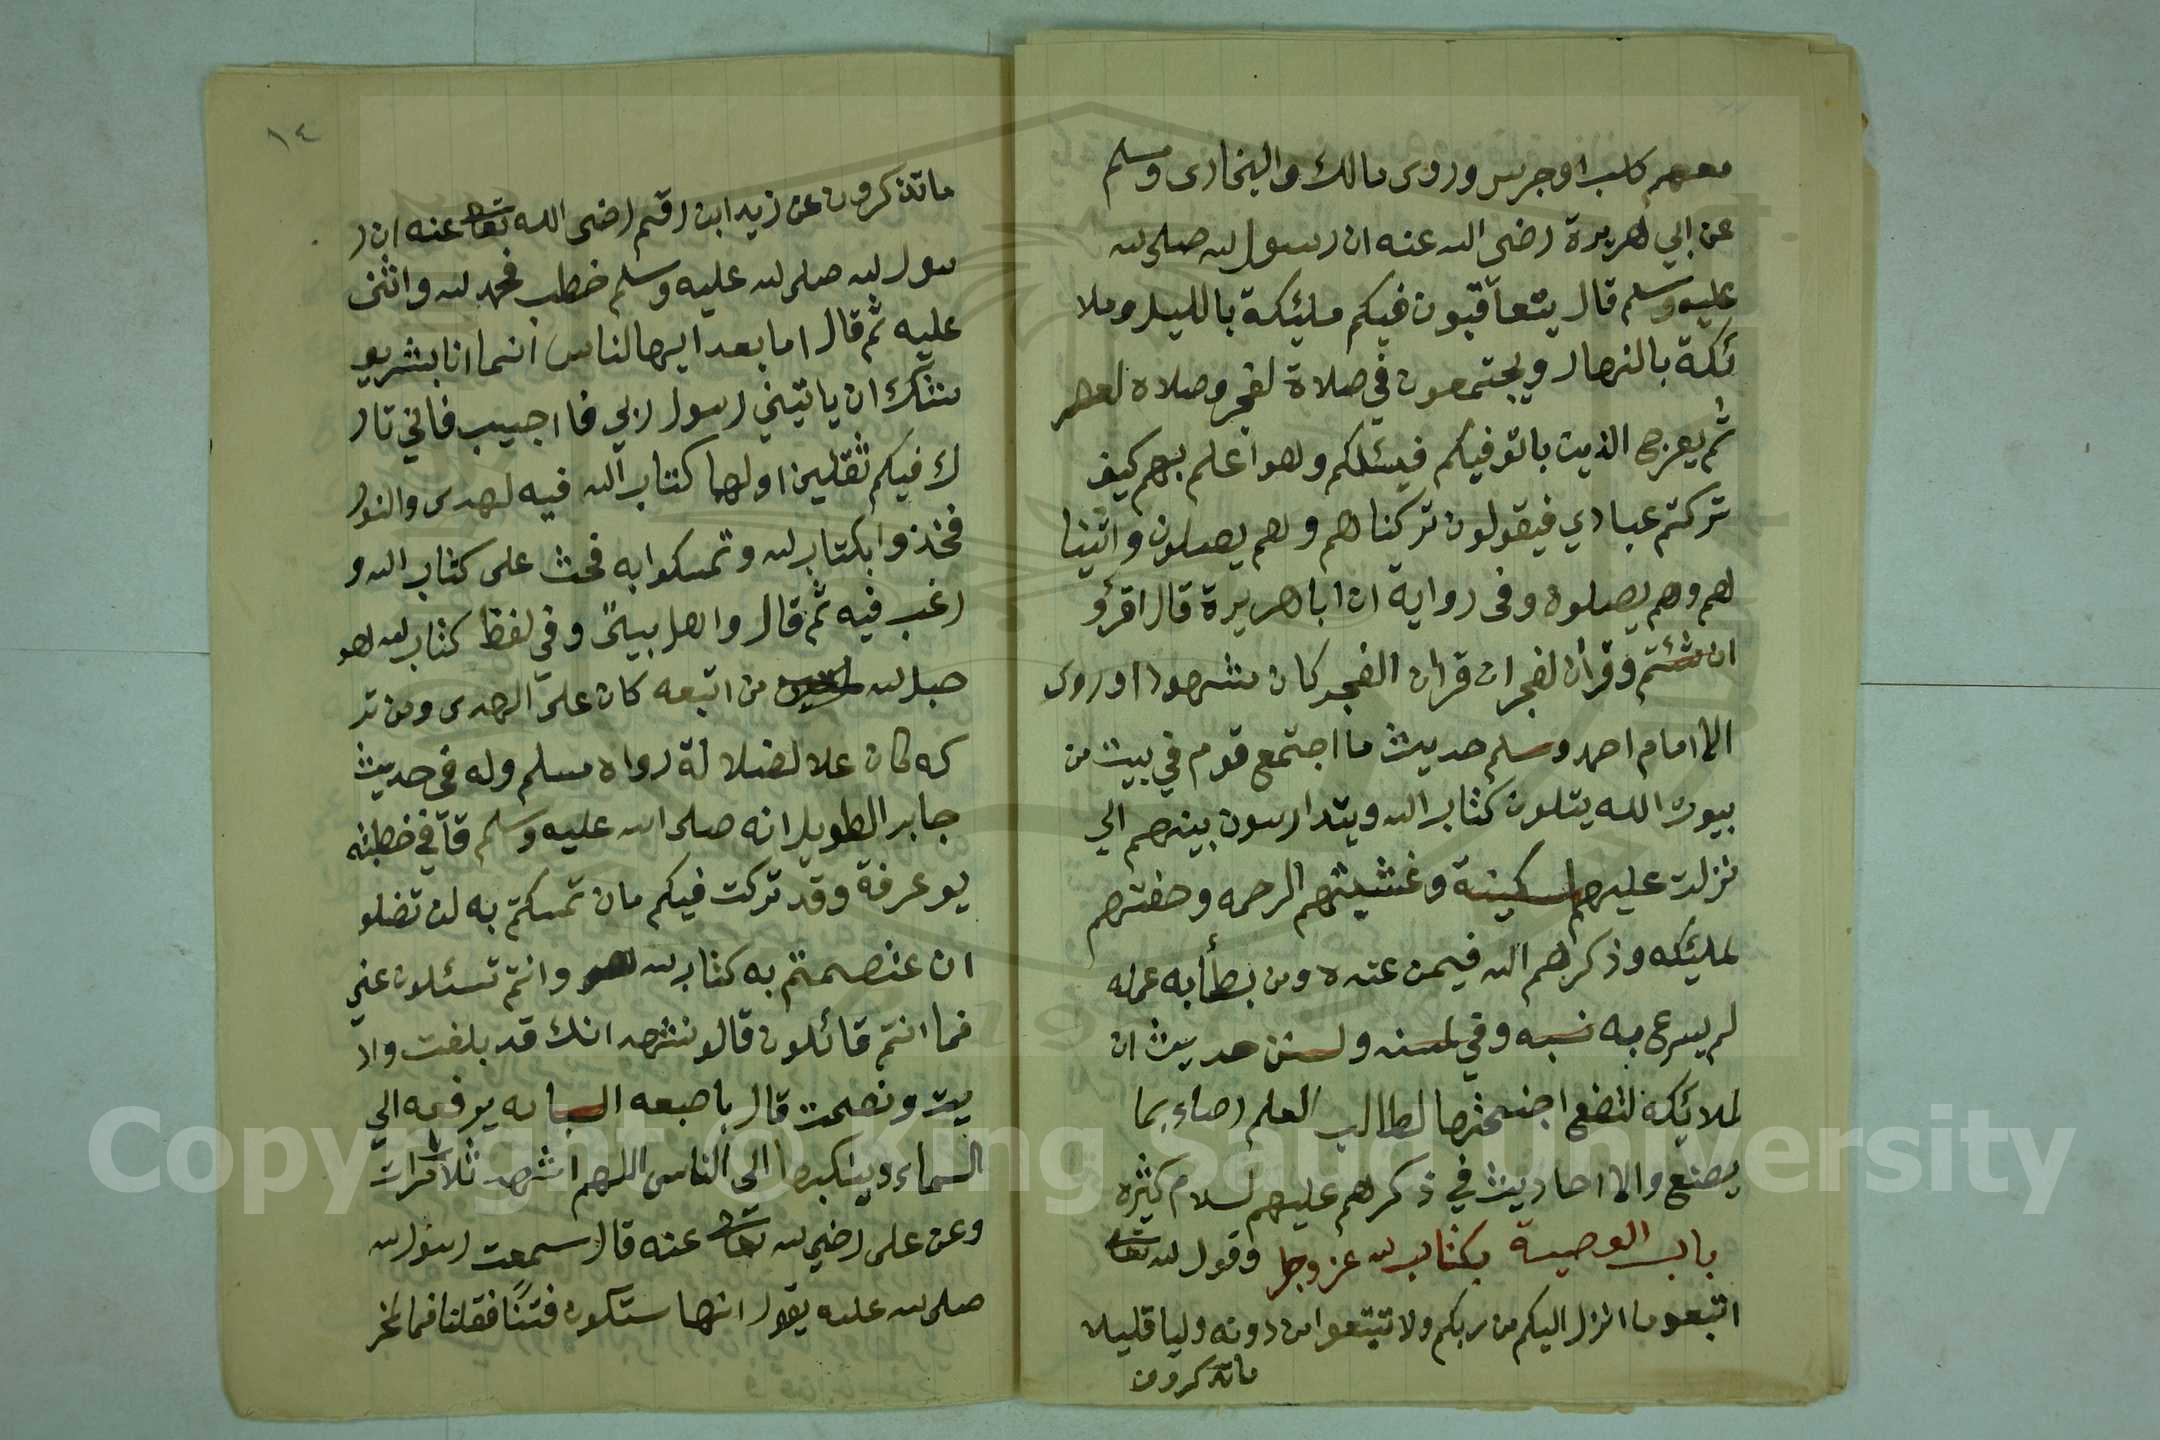 معهم كلب اوجرس وروى مالك والبخارى ومسلم
عن ابي هريرة رضى الله عنه ان رسول لله صلى لله
عليه وسلم قال يتعاقبون فيكم مليئكة بالليل وملا
ئكة بالنهار ويجتمعون في صلاة لفجر وصلاه لعصر
ثم يعرج الذين باتو فيكم فيسئلكم وهو اعلم بهم كيف
تركتم عبادي فيقولون تركناهم وهم يصلون واتينا
هم وهم يصلون وفى رواية ان ابا هريرة قال اقرؤ
ان شئتم وقرأن لفجر ان قران الفجر كان مشهودا وروى
الاامام احمد ومسلم حديث ما اجتمع قوم في بيت من
بيوت الله يتلون كتاب الله ويتدارسون بينهم الي
نزلت عليهم لسكينة وغشيتهم الرحمه وحفتهم
لمليئكه وذكرهم الله فيمن عنده ومن بطأ به عمله
لم يسرع به نسبه وفي لمسند ولسنن حديث ان
لملائكة لتضع اجنحتها لطالب العلم رضاء بما
يصنع والااحاديث في ذكرهم عليهم لسلام كثيره
باب الوصية بكتاب لله عز وجل وقول لله تعالى
اتبعو ما انزل اليكم من ربكم ولا تتبعوا من دونه وليا قليلا
ماتذكرون
١٤
ماتذكرون عن زيد ابن ارقم رضى الله تعالى عنه ان ر
سول لله صلى لله عليه وسلم خطب فحمد لله واثنى
عليه ثم قال اما بعد ايها لناس انما انا بشر يو
شك ان ياتيني رسول ربي فااجيب فاني تار
ك فيكم ثقلين اولهما كتاب الله فيه لهدى والنور
فخذوا بكتاب لله وتمسكوا به فحث على كتاب الله و
رغب فيه ثم قال واهل بيتى وفي لفظ كتاب لله هو
حبل لله من اتبعه كان على الهدى ومن تر
كه كان علا لضلالة رواه مسلم وله فى حديث
جابر الطويل انه صلى الله عليه وسلم قا في خطبته
يو عرفة وقد تركت فيكم مان تمسكتم به لن تضلو
ان عتصمتم به كتاب لله وانتم تسئلون عني
فما انتم قائلون قالو نشهد انك قد بلغت واد
يت ونصحت قال باصبعه السبابه يرفعه الي
السماء وينكبها الى الناس اللهم اشهد ثلاث مرات
وعن على رضي لله تعالى عنه قال سمعت رسول لله
صلى لله عليه يقول انها ستكون فتنًا فقلنا فما لمخر